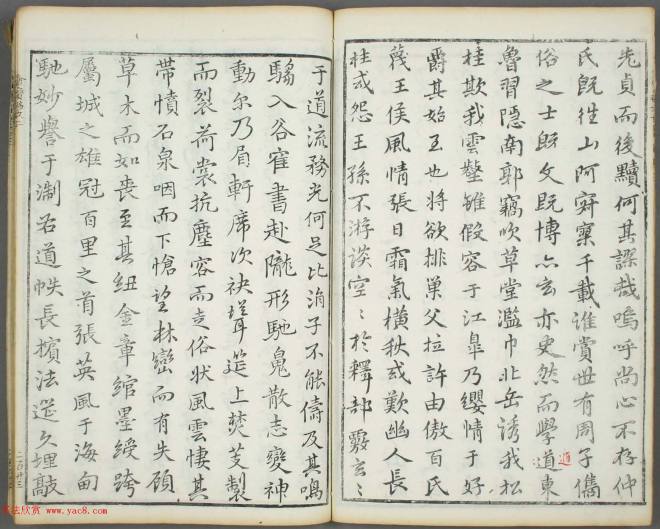 先貞而後黷何其謬哉嗚呼尚心不存仲
氏既往山阿寂寥千載誰賞世有周子儁
俗之士既文既博亦玄亦史然而學道東
遁
魯習隱南郭竊吹草堂濫巾北岳誘我松
桂欺我雲壑雖假容于江皋乃纓情于好
爵其始至也將欲排巢父拉許由傲百氏
蔑王侯風情張日霜氣橫秋或歎幽人長
往或怨王孫不游談空〻於釋部覈玄〻
于道流務光何足比涓子不能儔及其鳴
騶入谷隺書赴隴形馳魄散志變神
動尔乃眉軒席次袂聳筵上焚芰製
而裂荷裳抗塵容而走俗狀風雲悽其
帶憤石泉咽而下愴望林巒而有失顧
草木而如喪至其紐金章綰墨綬跨
屬城之雄冠百里之首張英風于海甸
馳妙譽于淛右道帙長擯法筵久埋敲
二百廿三
书法欣赏 www.yac8.com